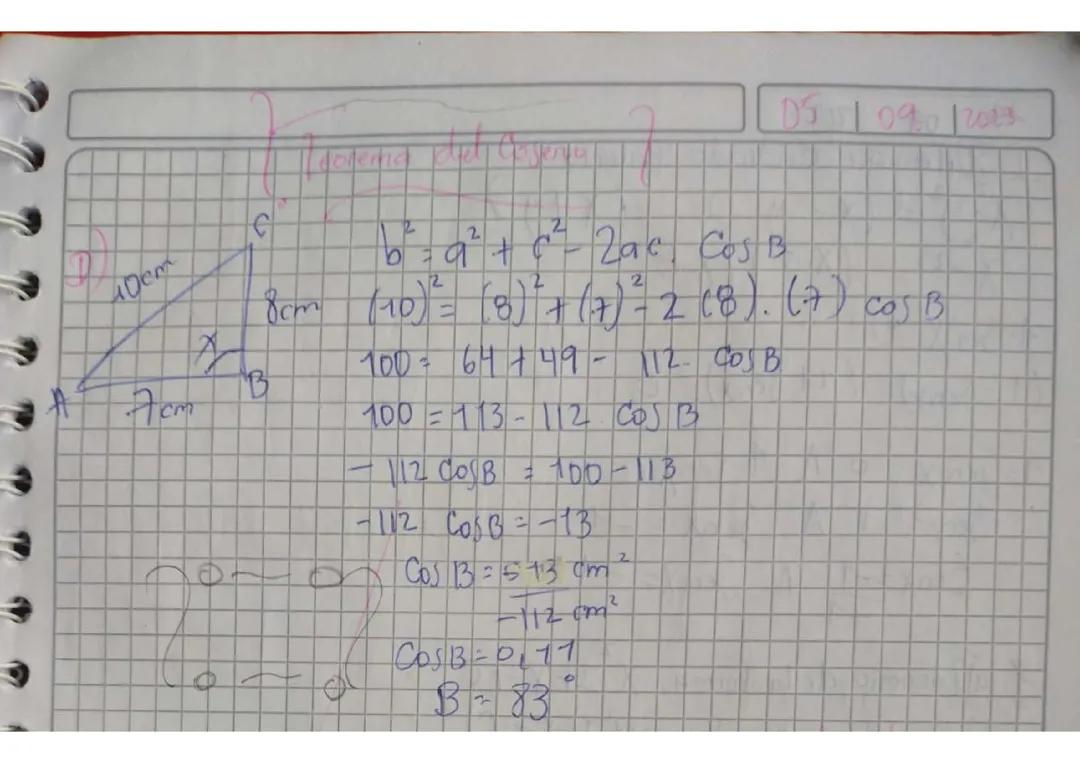 05 | 09 | 2023
Teorema del Coseno
D)
C
10cm
8cm
x
A
B
7cm
b² = a² + c² - 2ac. Cos B
(10)² = (8)² + (7)² - 2 (8). (7) cos B
100 = 64 + 49 - 112. Cos B
100 = 113 - 112. Cos B
- 112 Cos B = 100 - 113
-112 Cos B = -13
-112 cm²
Cos B = 0,11
B = 83°